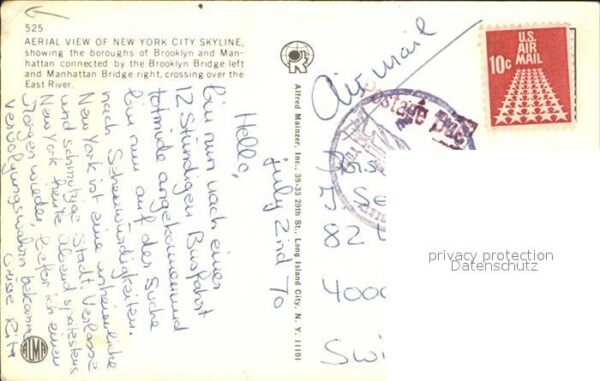 525
AERIAL VIEW OF NEW YORK CITY SKYLINE,
showing the boroughs of Brooklyn and Man-
hattan connected by the Brooklyn Bridge left
and Manhattan Bridge right, crossing over the
East River.
Alfred Mainzer, Inc., 39-33 29th St., Long Island City, N. Y. 11101
ALMA
july 2nd 70
Hello,
Bin nun nach einer
12 stündigen Busfahrt
todmüde angekommen und
bin nun auf der Suche
nach Sehenswürdigkeiten.
New York ist eine unheimliche
und schmutzige Stadt. Verlasse
New York heute Abend spätestens
Morgen wieder, bevor ich einen
Verfolgungswahn bekomme
Grüsse Rita
Air mail
U.S.
AIR
MAIL
10c
Postage Due
82
4000
Swi
privacy protection
Datenschutz